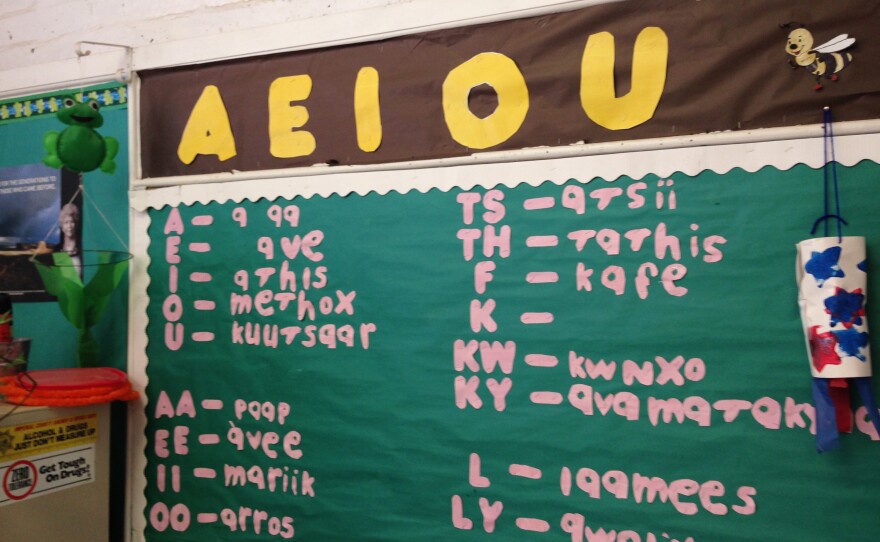 A E I O U
A - a qa
E - ave
I - athis
O - methox
U - kuutsaar
AA - paap
EE - àvee
II - mariik
OO - arros
TS - atsii
TH - tathis
F - kafe
K -
KW - kwnxo
KY - avamataky
L - laamees
LY -
THOSE WHO CAME BEFORE.
ALCOHOL & DRUGS
JUST DON'T MEASURE UP
ZERO
TOLERANCE
Get Tough
On Drugs!